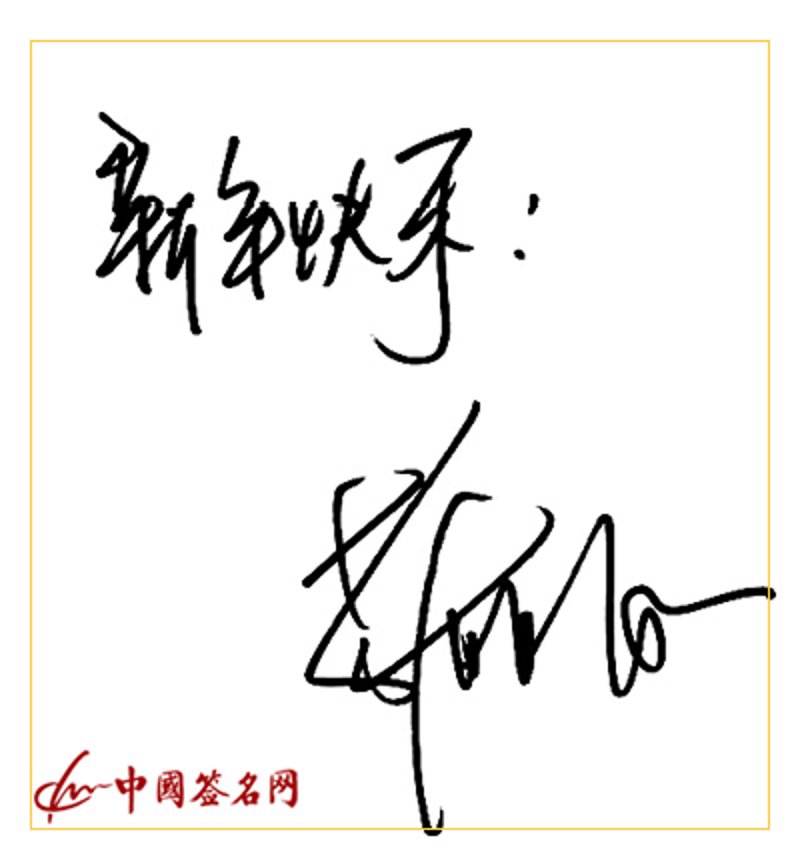 新年快乐：
中國签名网